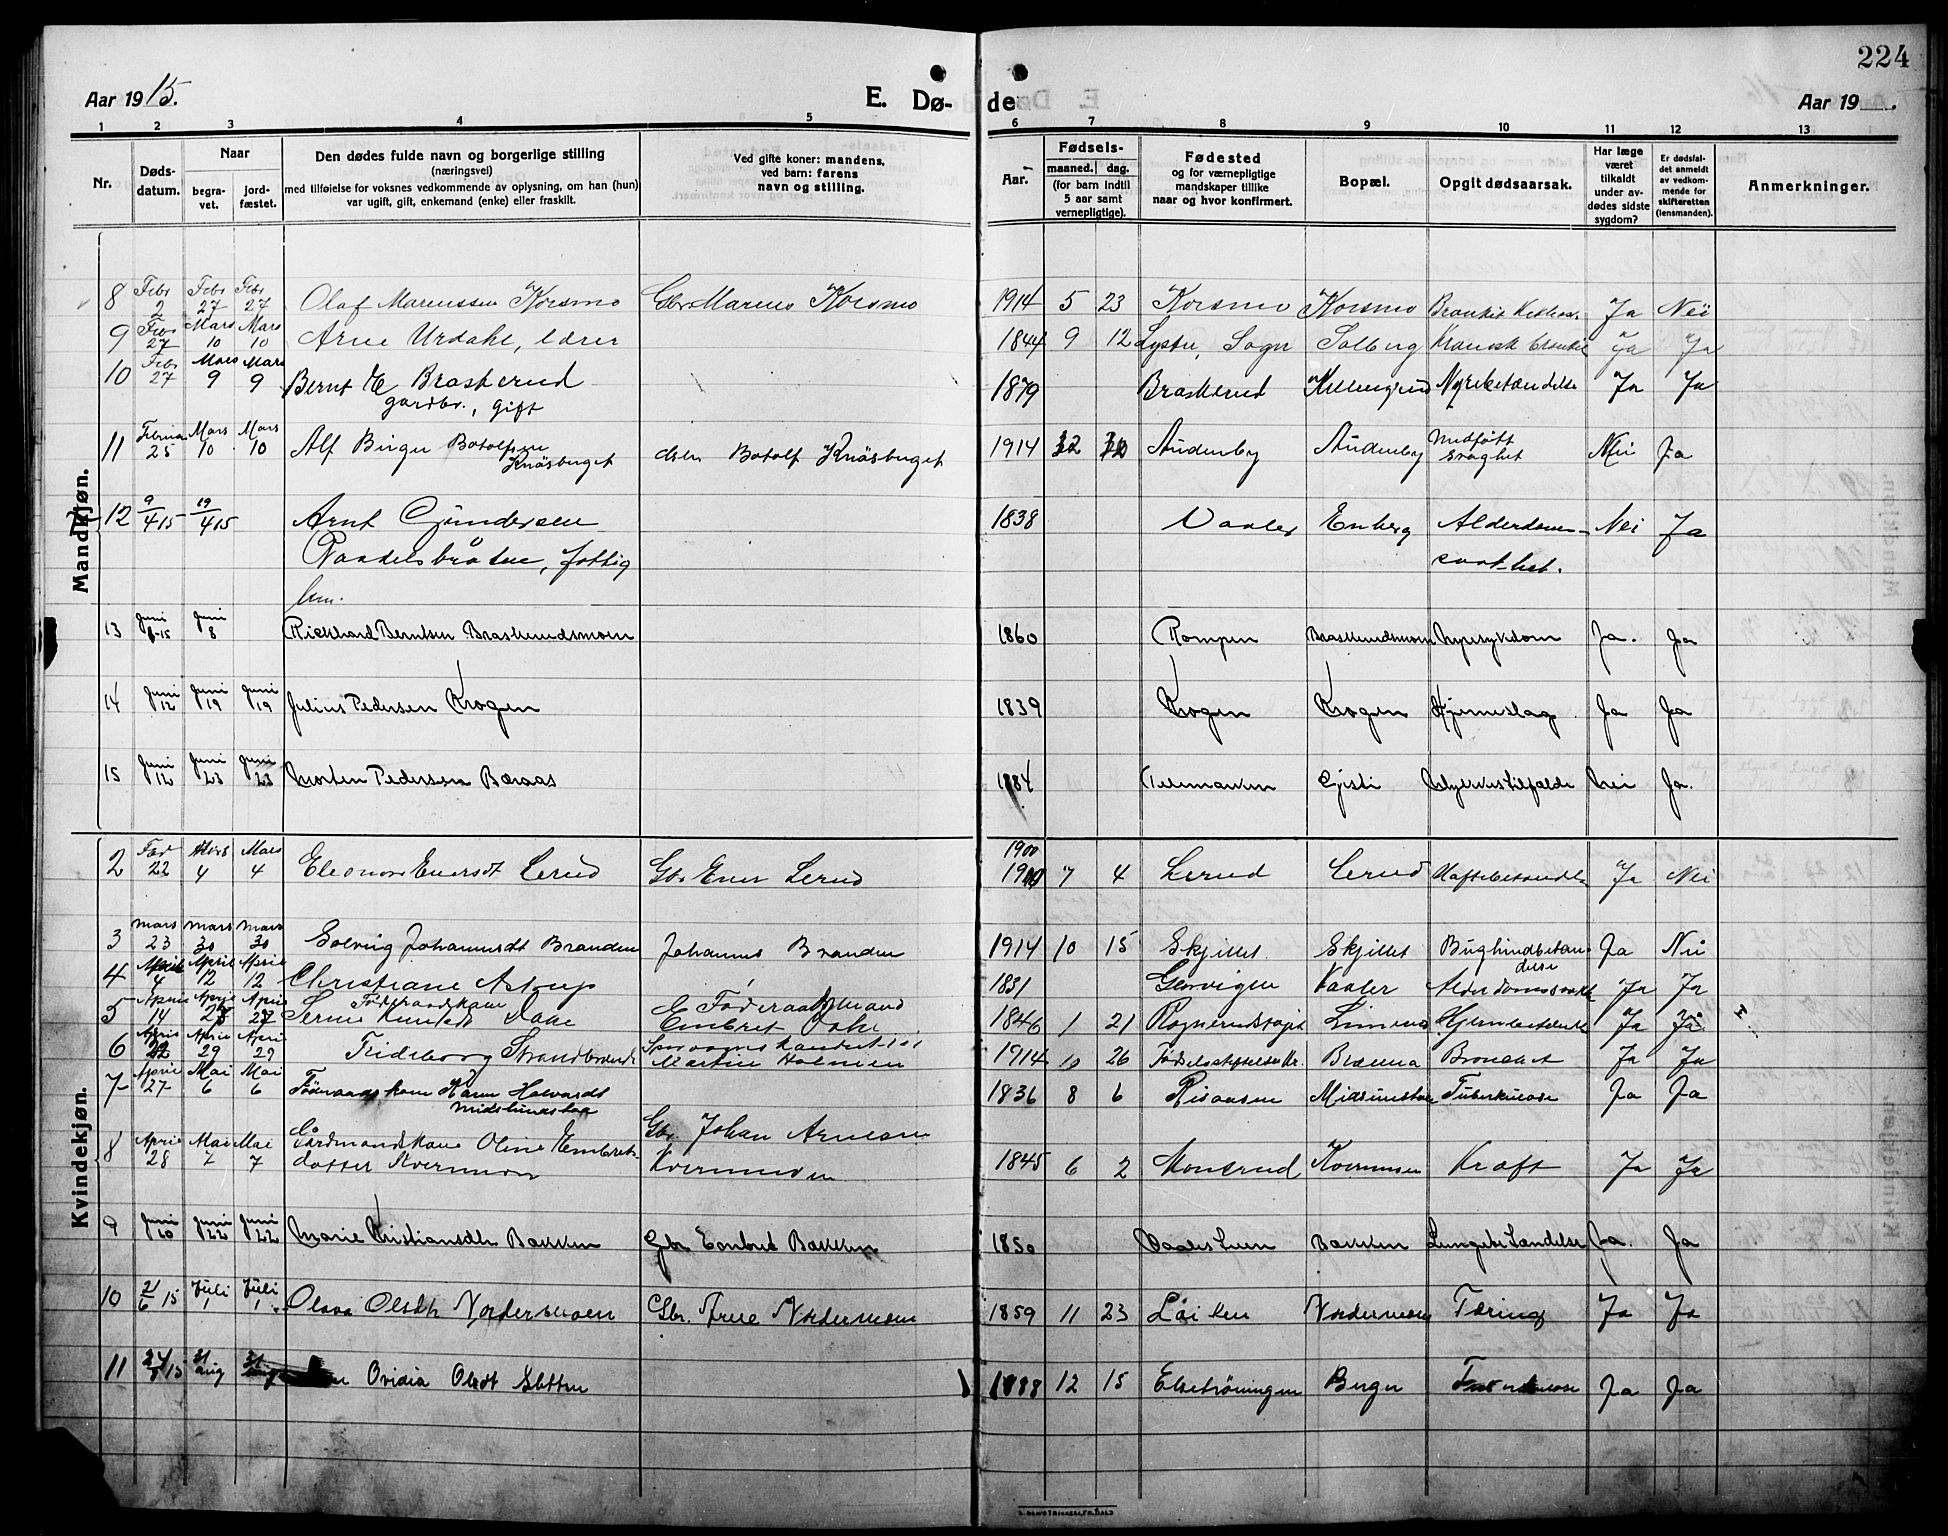 224
Aar 1915.
E. Dø-
de
Aar 19 .
1 2 3 4 5 6 7 8 9 10 11 12 13
Nr.
Døds-
datum.
Naar
begra-
vet.
jord-
fæstet.
Den dødes fulde navn og borgerlige stilling
(næringsvei)
med tilføielse for voksnes vedkommende av oplysning, om han (hun)
var ugift, gift, enkemand (enke) eller fraskilt.
Ved gifte koner: mandens,
ved barn: farens
navn og stilling.
Aar.
Fødsels-
maaned. dag.
(for barn indtil
5 aar samt
vernepligtige).
Fødested
og for værnepligtige
mandskaper tillike
naar og hvor konfirmert.
Bopæl.
Opgit dødsaarsak.
Har læge
været
tilkaldt
under av-
dødes sidste
sygdom?
Er dødsfal-
det anmeldt
av vedkom-
mende for
skifteretten
(lensmanden).
Anmerkninger.
Mandkjøn.
8 Febr 2 Febr 27 Febr 27 Olaf Marenssen Korsmo Gbr. Marens Korsmo 1914 5 23 Korsmo Korsmo Ja Nei
9 Febr 27 Mars 10 Mars 10 Arne Urdahl, lærer 1844 9 12 Lyster, Sogn Solberg Kronisk bronkit Ja Ja
10 Febr 27 Mars 9 Mars 9 Bernt E Braskerud 1879 Braskerud Nyrebetændelse Ja Ja
gardbr., gift
11 Februar 25 Mars 10 Mars 10 Alf Birger Botolfsen Knåsberget Botolf Knåsberget 1914 12 Auderby Auderby Medfött svaghet Nei Ja
12 9/4 15 19/4 15 Arnt Gundersen 1838 Vaaler Enberg Alderdoms- Nei Ja
Raadelsbråten, fattig svakhet.
lem.
13 Juni 15 Juni 8 Rickhard Berntsen Braskerudsmoen 1860 Rompen Braskerudsmoen Nyresykdom Ja. Ja
14 Juni 12 Juni 19 Juni 19 Julius Pedersen Krogen 1839 Krogen Krogen Hjerneslag Ja Ja
15 Juni 12 Juni 23 Juni 23 Morten Pedersen Baraas 1884 Telemarken Gjesti Ulykkestilfælde Nei Ja.
Kvindekjøn.
2 22 Mars 4 Mars 4 Eleonore Enersdt Lerud Gbr. Ener Lerud 1900 7 4 Lerud Lerud Hoftebetændelse Ja Nei
3 Mars 23 Mars 30 Mars 30 Solveig Johannesdt Branden Johannes Branden 1914 10 15 Skjillet Skjillet Bughindbetæn- delse Ja Nei
4 April 4 April 12 April 12 Christiane Astrup 1831 Vaaler Alderdomssvakh Ja Ja
5 April 14 April 27 April 27 Føderaadskone Føderaadsmand Embret 1846 1 21 Ja Ja
6 April 22 April 29 April 29 Fredeborg Strandbraaten Sporvognskonduktør Martin Holmen 1914 10 26 Bronchit Ja Ja
7 April 27 Mai 6 Mai 6 Føderaadskone Karen Halvorsdt Midtsundstaa 1836 8 6 Risaasen Tuberkulose Ja Ja
8 April 28 Mai 7 Mai 7 Gaardmandskone Oline Embrets- Gbr. Johan Arnesen
datter Kvernmoen Kvernmoen 1845 6 2 Monsrud Kvernmoen Kræft Ja Ja
9 Juni 10 Juni 22 Juni 22 Marie Kristiansdtr Bakken Gbr Embret Bakken 1850 Bakken Lungebetændelse Ja. Ja
10 21/6 15 Juli 1 Juli 1 Olava Olsdtr Nordermoen Gbr. Arne Nordermoen 1859 11 23 Löiten Nordermoen Tæring Ja Ja
11 24/8 15 31 aug 31 aug Ovidia Olsdt Sletten 1888 12 15 Berger Tuberkulose Ja Ja